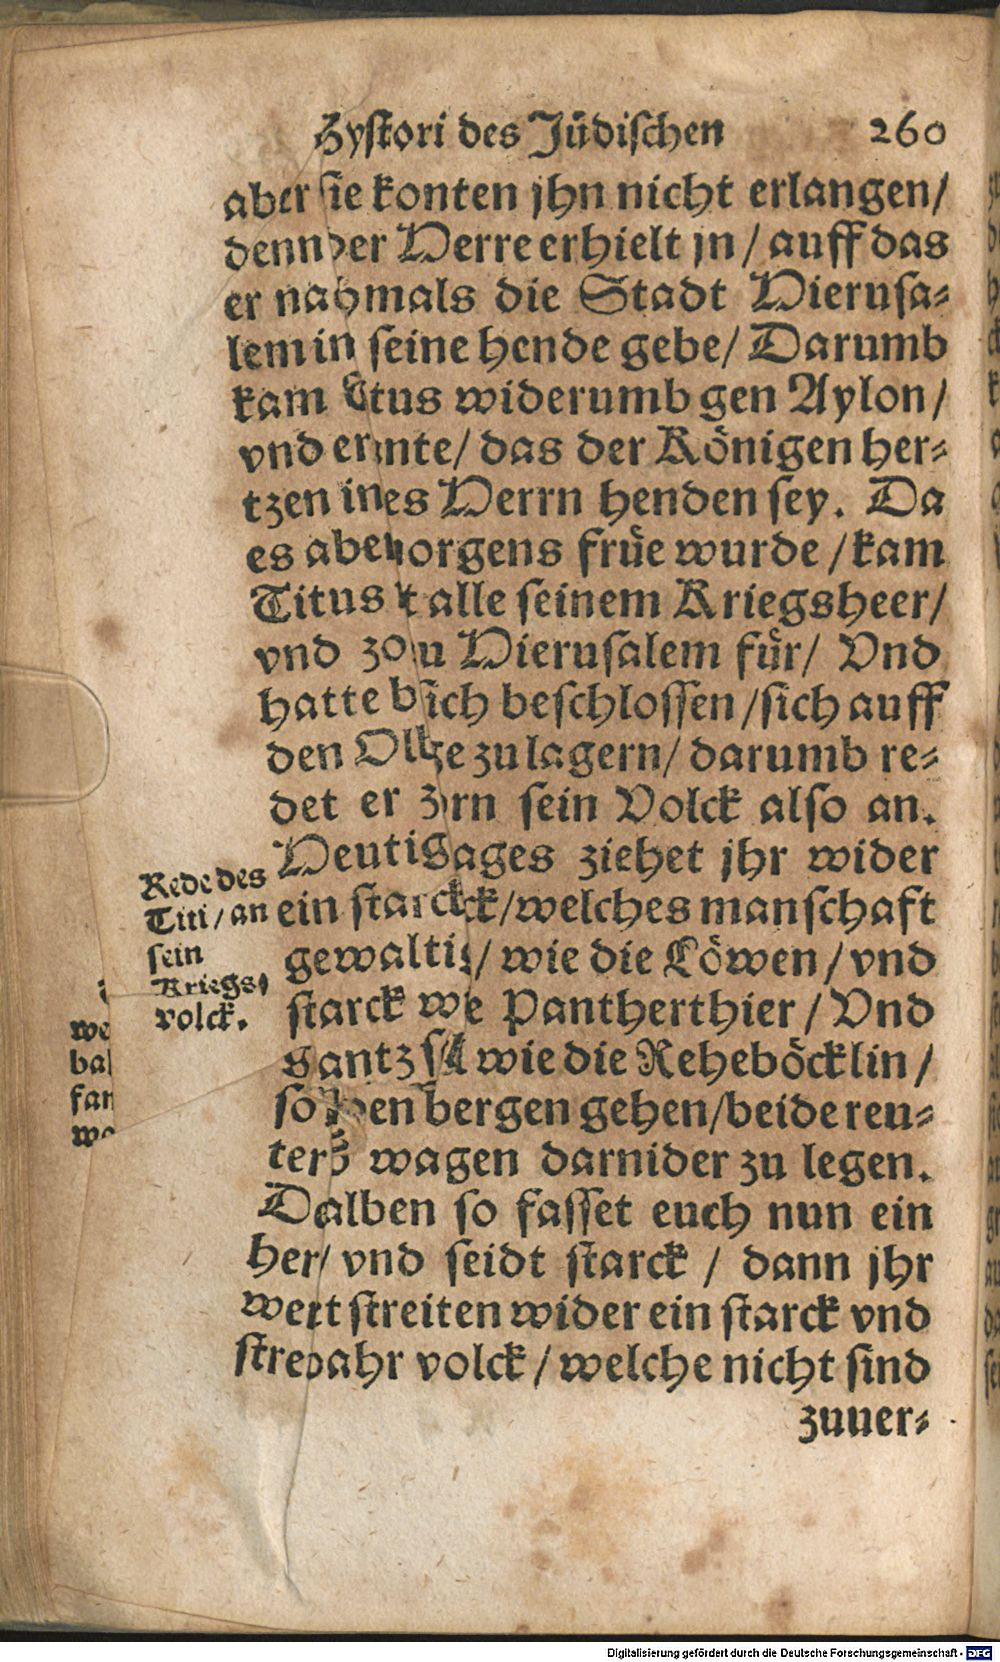 Hystori des Jüdischen 260
aber sie konten jhn nicht erlangen/
denn der Herre erhielt jn / auff das
er nahmals die Stadt Hierusa⸗
lem in seine hende gebe/ Darumb
kam widerumb gen Aylon /
vnd das der Königen her⸗
tzen Herrn henden sey. Da
es frûe wurde / kam
Titus alle seinem Kriegsheer/
vnd Hierusalem fûr/ Vnd
hatte sich beschlossen /sich auff
den zu lagern/ darumb re⸗
det er sein Volck also an.
ziehet jhr wider
ein /welches manschaft
/ wie die Löwen / vnd
starck Pantherthier / Vnd
gantz wie die Reheböcklin /
so bergen gehen/beide reu⸗
wagen darnider zu legen.
so fasset euch nun ein
vnd seidt starck / dann jhr
streiten wider ein starck vnd
volck / welche nicht sind
zuuer⸗
Rede des
Titi / an
sein
Kriegs⸗
volck.
we
bal
fan
Digitalisierung gefördert durch die Deutsche Forschungsgemeinschaft - DFG